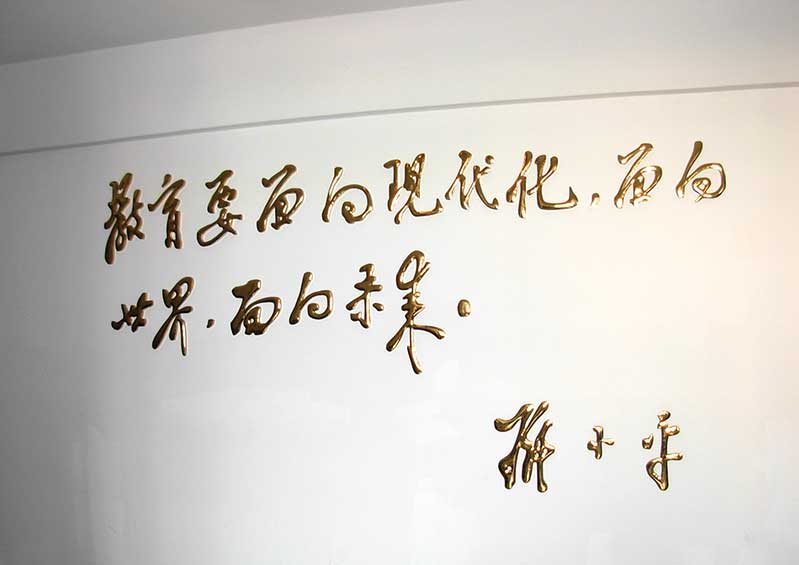 教育要面向现代化，面向
世界，面向未来。
邓小平